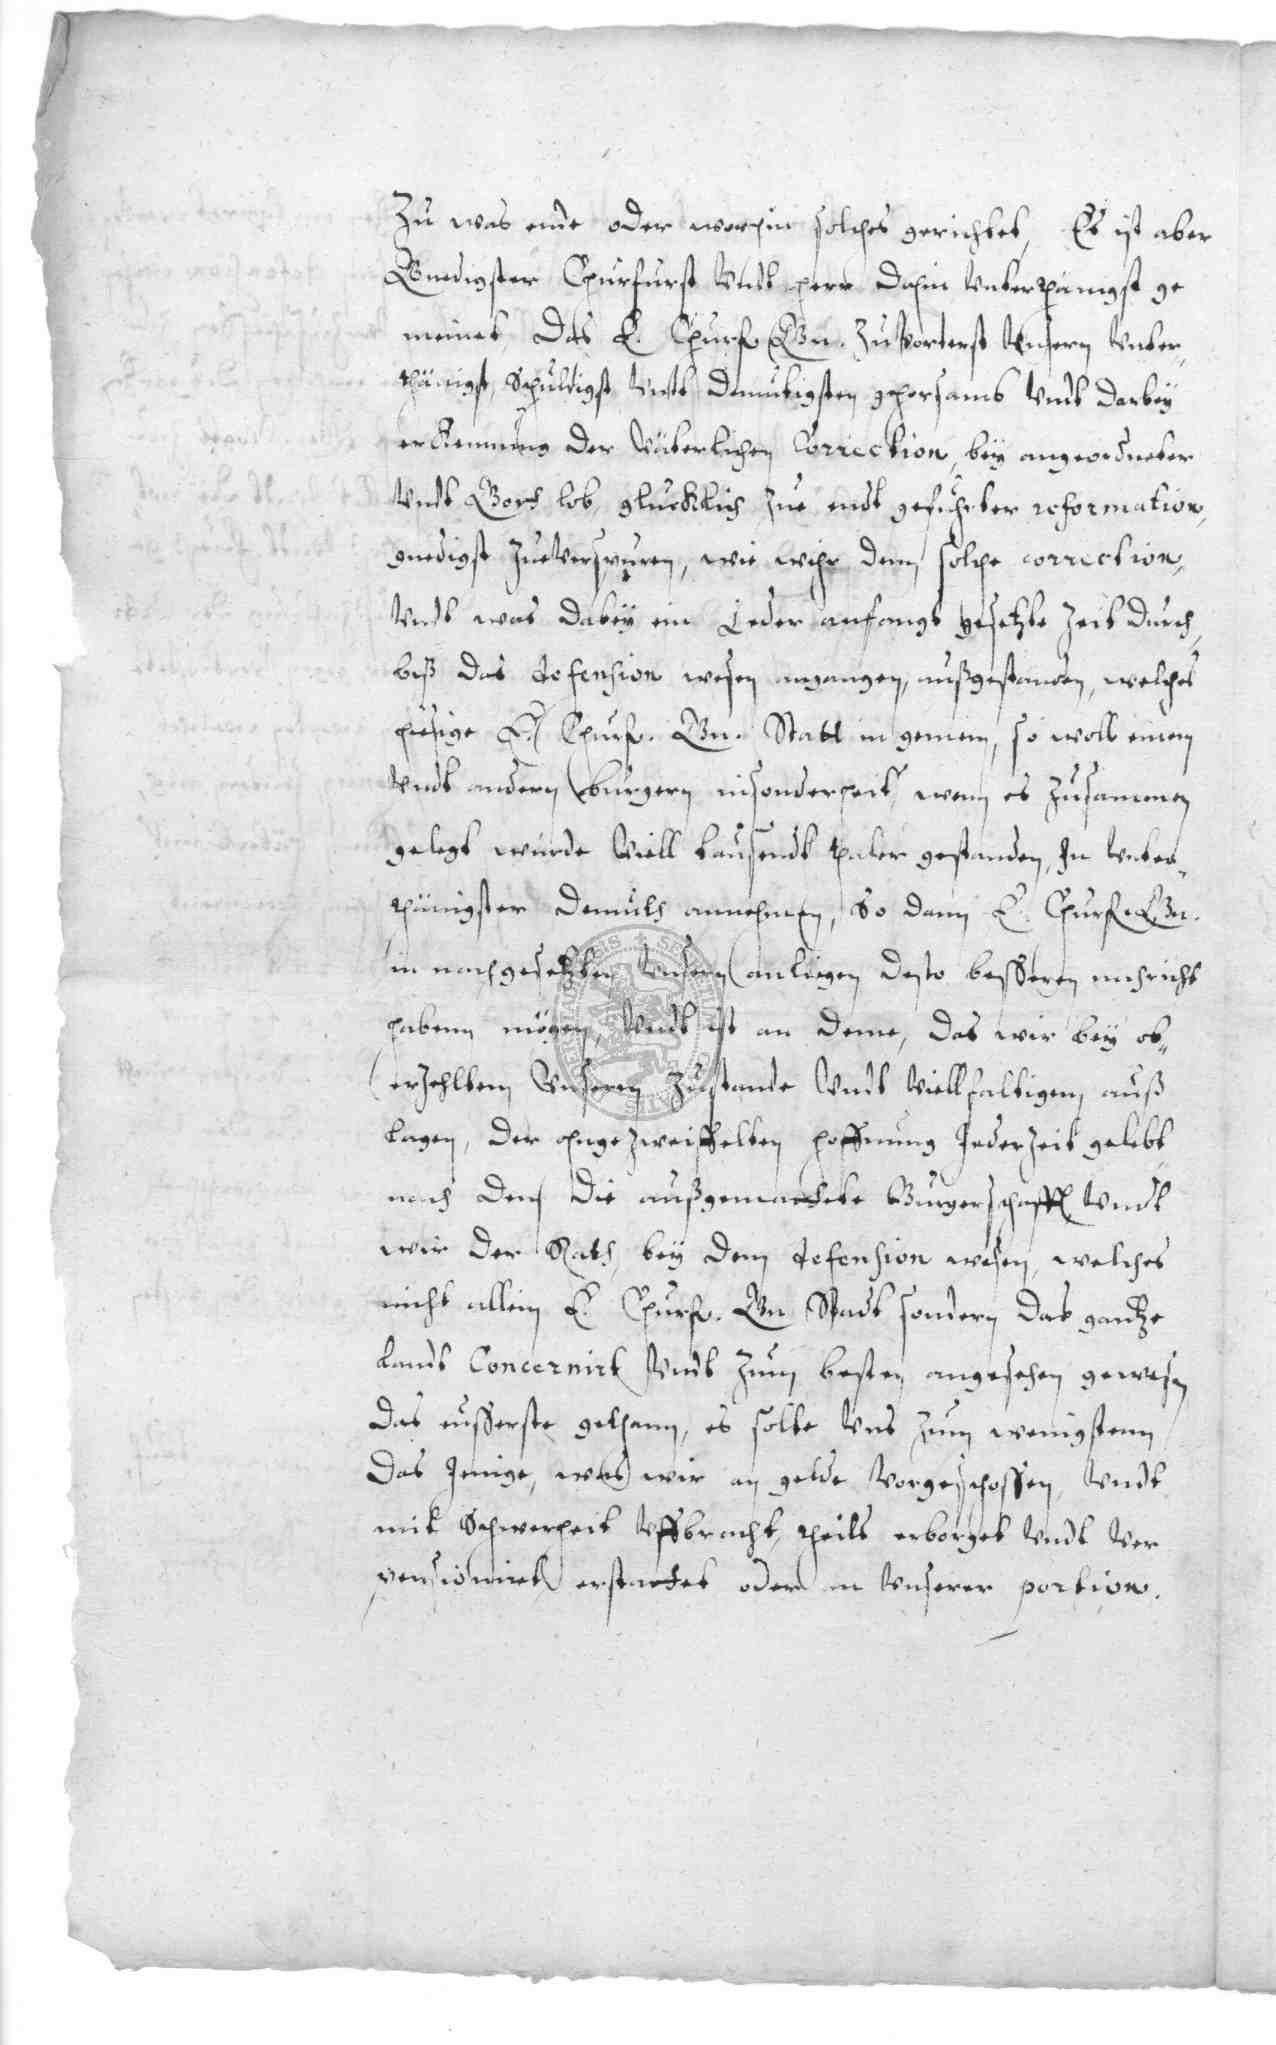 Zu was ende oder worhin solches gerichtet, Es ist aber
Gnedigster Churfurst Vndt herr dahin Vnterthänigst ge
meinet, Das E. Churf. Gn. Zuvorderst Vnsern Vnter-
thänigst, Schuldigst Vndt demutigsten gehorsamb Vndt darbey
erKennung der Väterlichen Correction, bey angeordneter
Vndt Gott lob, glucklich zue endt gefuhrter reformation,
gnedigst Zueverspuren, wie wihr dem solche correction,
Vndt was dabey ein Jeder anfangs gesetzte Zeit durch,
biß das defension wesen angangen, außgestanden, welches
hiesige E. Churf. Gn. Stadt in gemein, so woll einem
Vndt andern burgern insonderheit, wenn es Zusammen
gelegt wurde Viell tausendt thaler gestanden, In Vnter-
thänigster demuth annehmen, So dann E. Churf. Gn.
in nachgesetzten Vnsern anligen desto besseren nachricht
habenn mögen, Vndt ist an deme, das wir bey ob-
erzehltem Vnserem Zustande Vndt Viellfaltigen auß
lagen, der ohngezweiffelten hoffnung Jederzeit gelebt
nach dem die außgemachete Burgerschafft Vndt
wir der Rath, bey dem defension wesen, welches
nicht allein E. Churf. Gn Stadt sondern das gantze
Landt Concernirt Vndt zum besten angesehen gewesen
Das eusserste gethann, es solte Vns zum wenigstenn
Das Jenige, was wir an gelde Vorgeschossen, Vndt
mit Schwerheit Vffbracht, theils erborget Vndt Ver
pensionirt, erstattet oder an Vnserer portion.